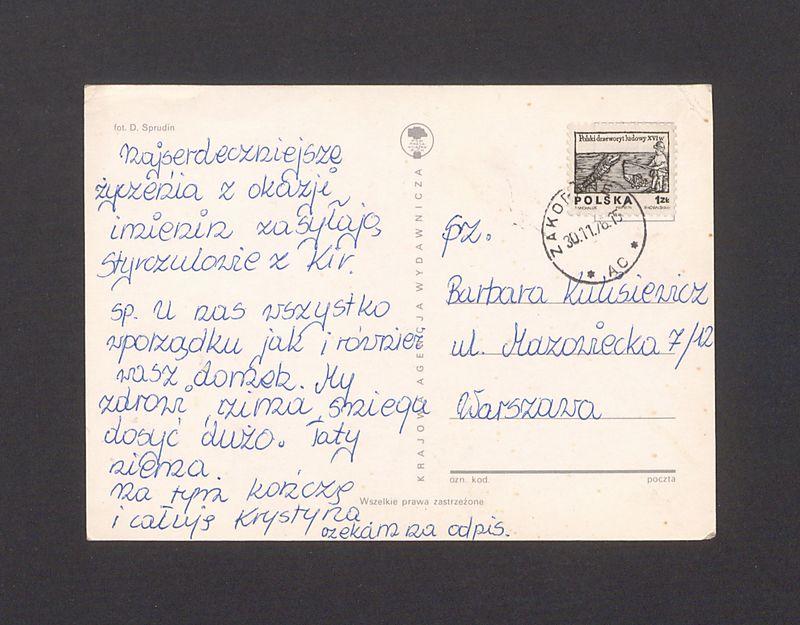 fot. D. Sprudin
najserdeczniejsze
życzenia z okazji
imienin zasyłają
Styrczulowie z Kir.
sp. U nas wszystko
wporządku jak i również
wasz domek. My
zdrowi, zima, śniegu
dosyć dużo. Taty
niema
na tym kończę
i całuję Krystyna
czekam na odpis.
KRAJOWA AGENCJA WYDAWNICZA
Polski drzeworyt ludowy XVI w
POLSKA 1 Zł
30.11.76.15
* AC *
pz.
Barbara Kulisiewicz
ul. Mazowiecka 7/12
Warszawa
ozn. kod. poczta
Wszelkie prawa zastrzeżone